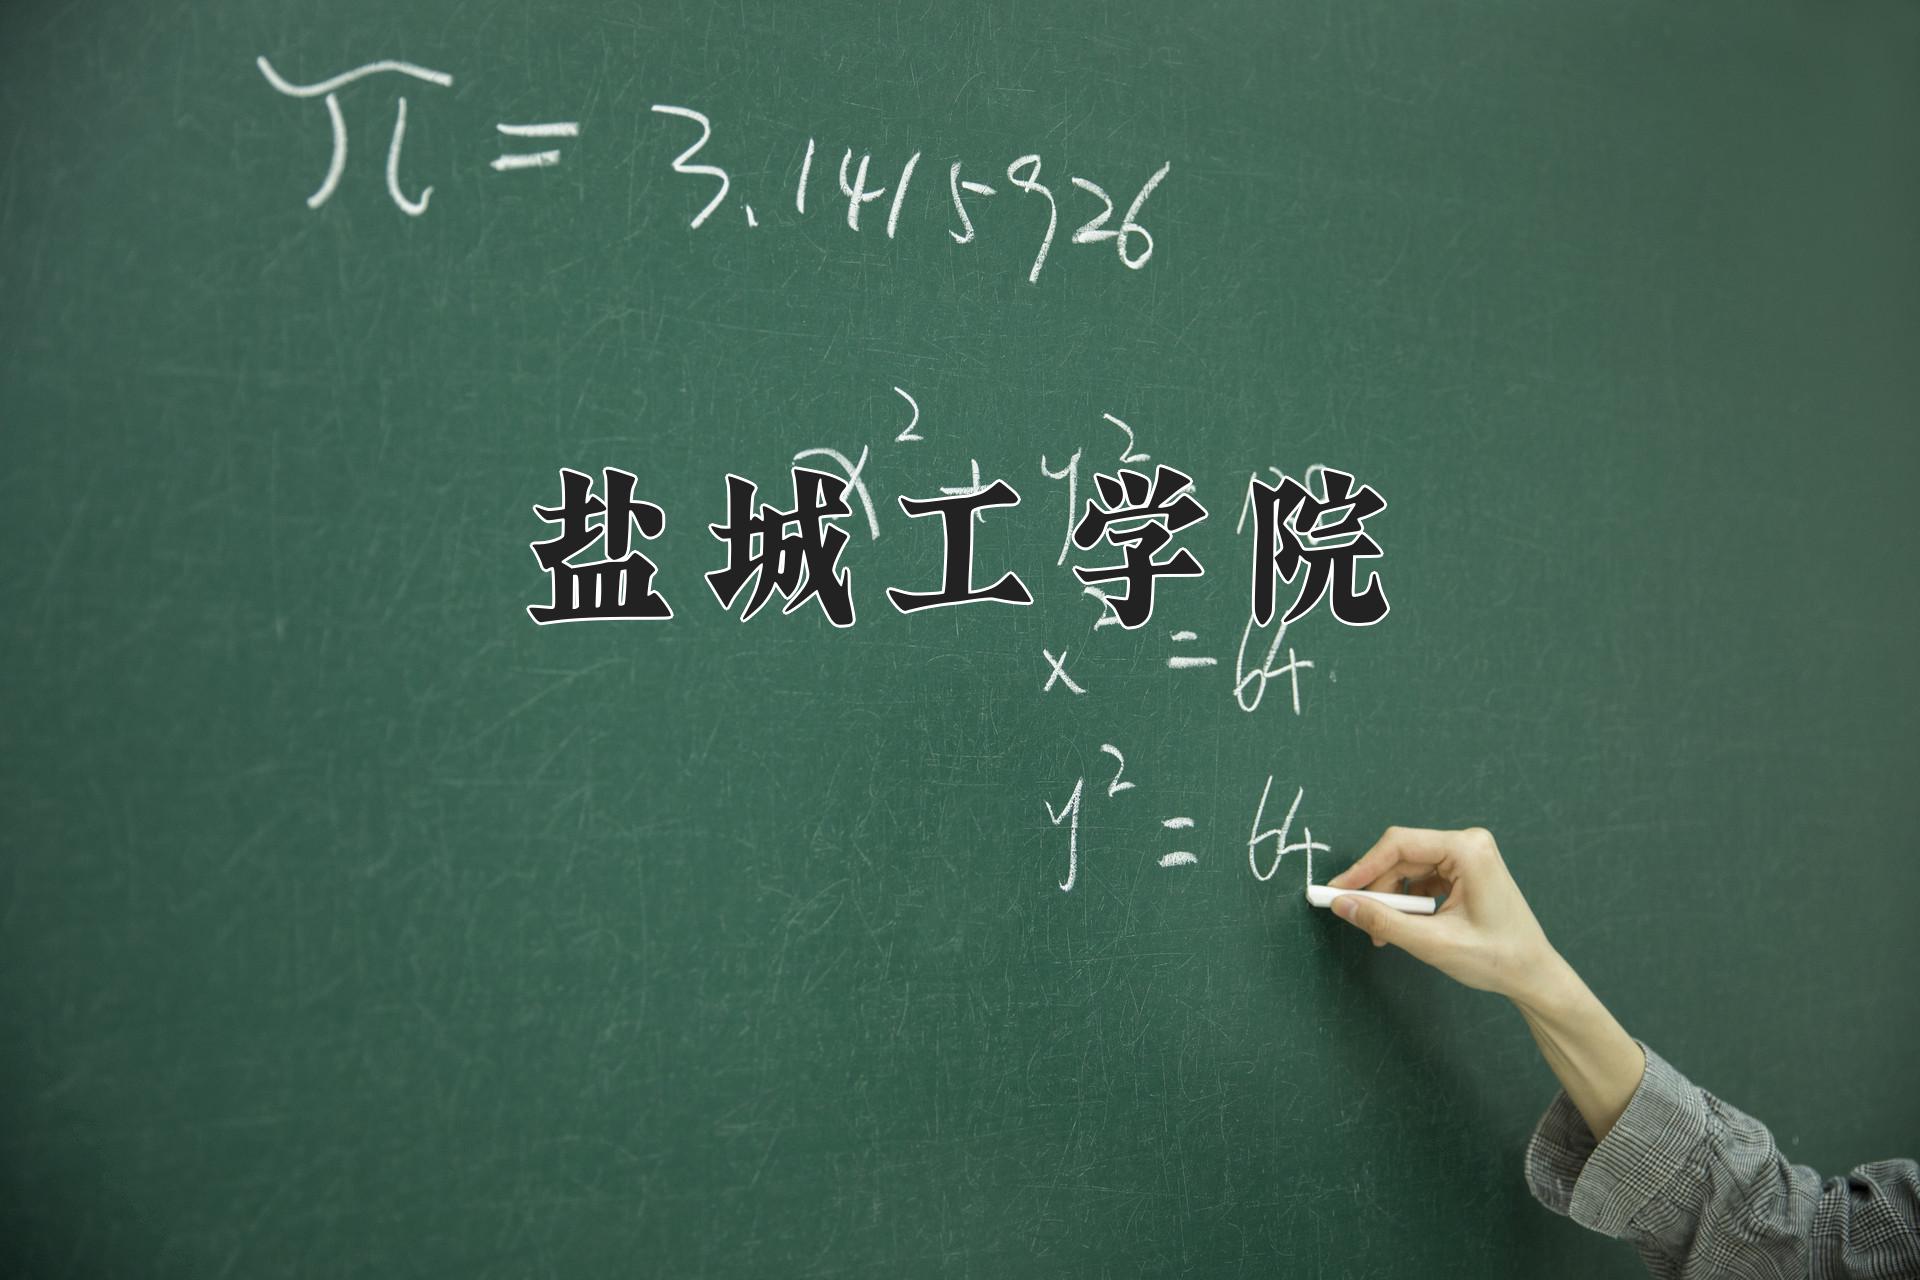 π = 3.1415926
x² + y² = 128
盐城工学院
x² = 64
y² = 64